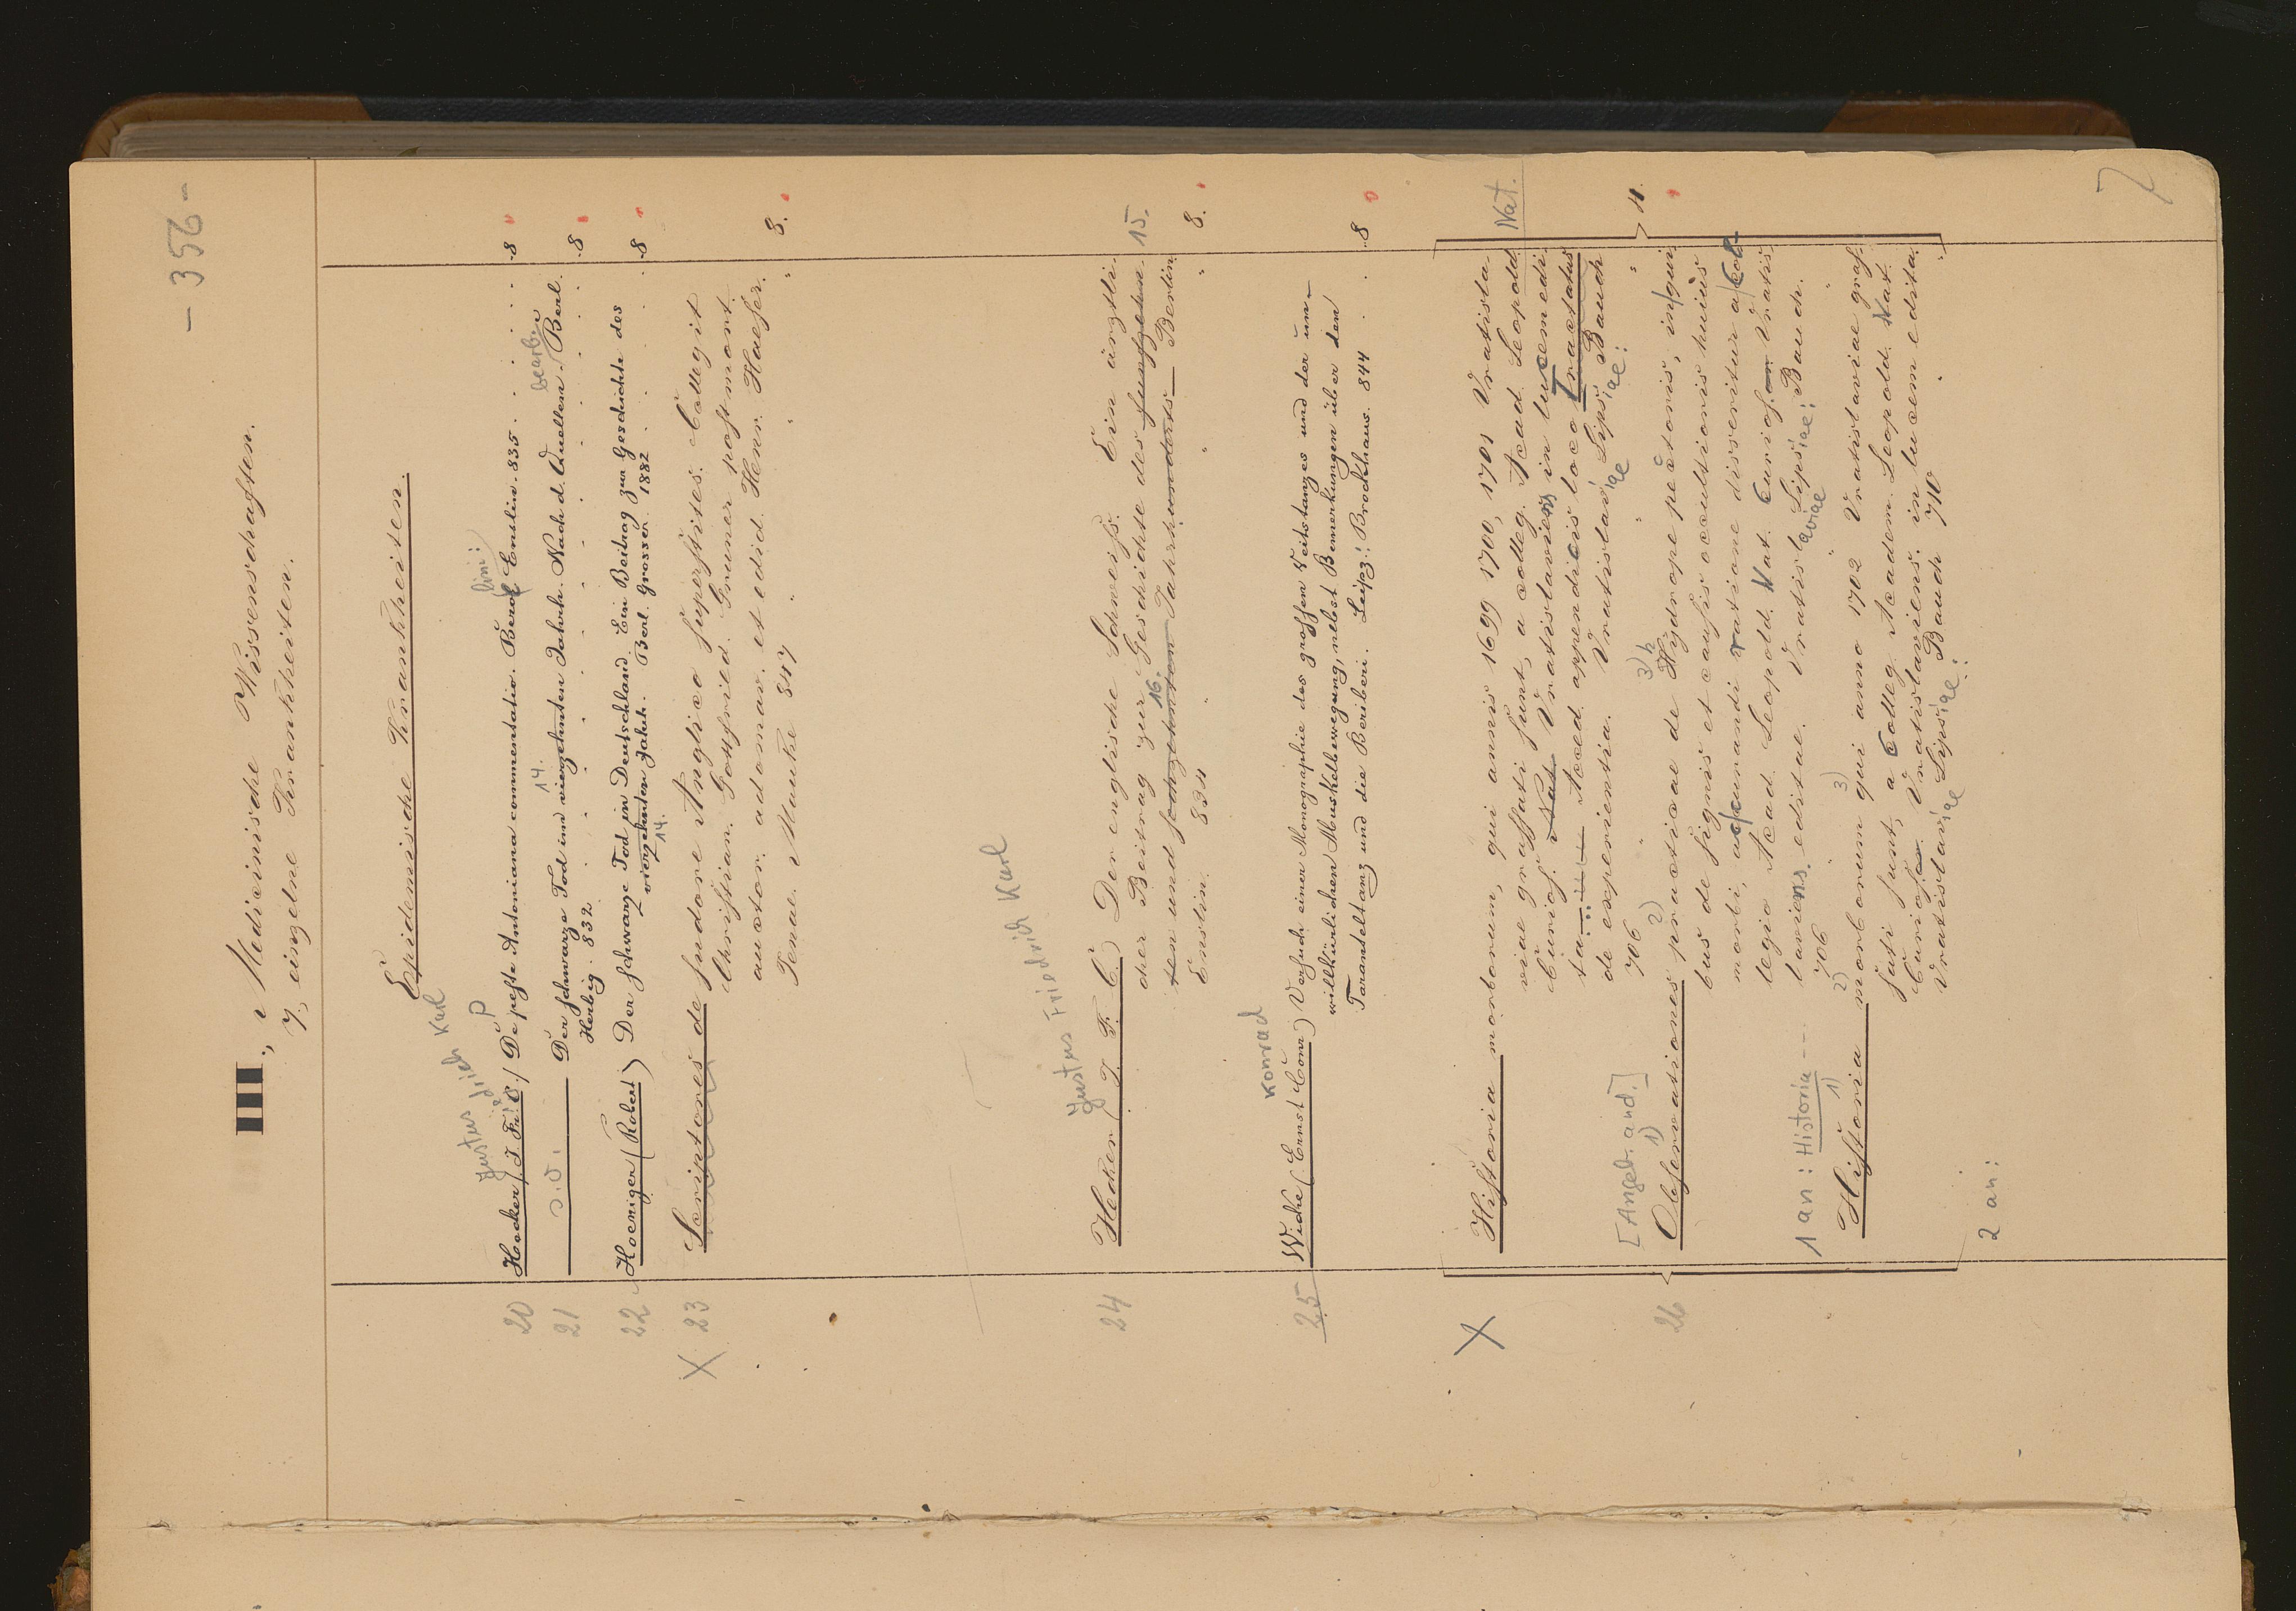 - 356 -
III., Medicinische Wissenschaften.
7, einzelne Krankheiten.
Epidemische Krankheiten.
Justus drich Karl
20 Hecker (J. Fr. C.) De peste Antoniana commentatio. Berol Enslin. 835. 8
lini:
14. bearb.
21 s. o. Der schwarze Tod im vierzehnten Jahrh. Nach d. Quellen. Berl. 8
Herbig. 832.
22 Hoeniger (Robert) Der schwarze Tod in Deutschland. Ein Beitrag zur Geschichte des
vierzehnten Jahrh. Berl. Grosser. 1882 8
14.
X 23 Scriptores de sudore Anglico superstites. Collegit
Christian. Gottfried. Gruner post mort.
auctor. adornav. et edid. Henr. Haeser.
Jenae. Mauke 847 8.
Justus Friedrich Karl
24 Hecker (J. F. C.) Der englische Schweiss. Ein ärztli-
cher Beitrag zur Geschichte des funfzehn- 15.
16.
ten und sechzehnten Jahrhunderts Berlin
Enslin. 834 8.
Konrad
25 Wicke (Ernst Conr) Versuch einer Monographie des grossen Veitstanzes und der un-
willkürlichen Muskelbewegung, nebst Bemerkungen über den
Taranteltanz und die Beriberi. Leipz: Brockhaus. 844 8
X Historia morborum, qui annis 1699 1700, 1701 Vratisla-
viae grassati sunt, a colleg. Acad. Leopold Nat.
Curios. Nat Vratislaviens in lucem edi-
ta. Acced. appendicis loco Tractatus
de experientia. Vratislav Lips Bauch
iae iae:
706 4.
[Angeb. and.]
26 Observationes practicae de Hydrope pectoris, in qui
bus de signis et causis occultioris huius
morbi, ac curandi ratione disseritur a Col-
legio Acad. Leopold. Nat. Curios. Vratis
laviens. editae. Vratisl Lipsiae: Bauch.
aviae
706
1 an: Historia --
Historia morborum qui anno 1702 Vratislaviae gras-
sati sunt, a Colleg. Academ. Leopold. Nat.
Curios. Vratislaviens. in lucem edita.
Vratislav Lips Bauch 710
iae iae:
2 an: